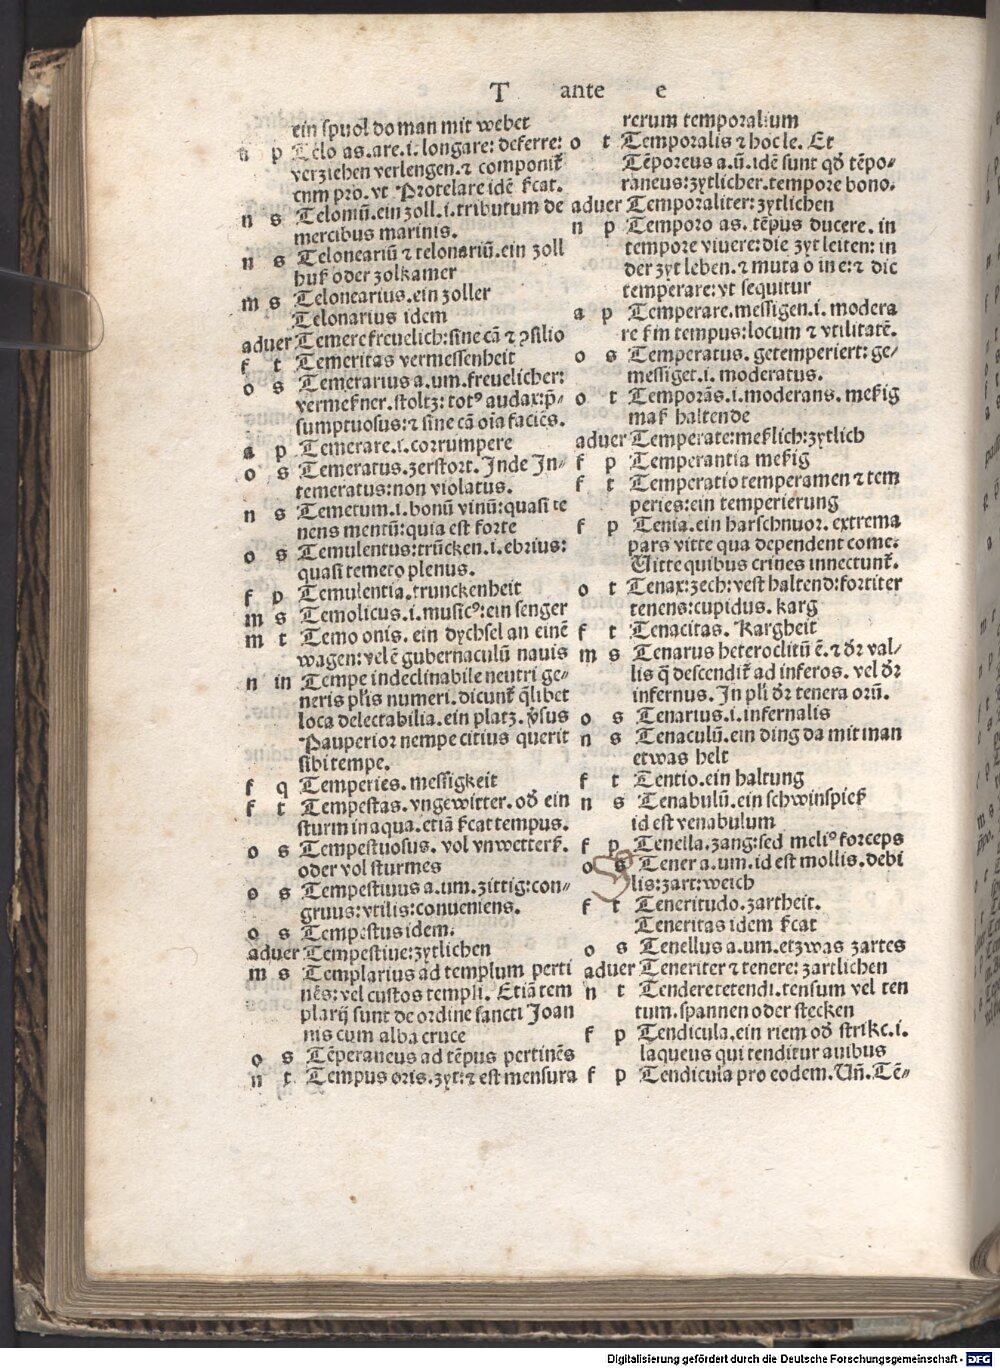 T ante e
ein spuol do man mit webet
n p Telo as.are.i.longare: deferre:
verziehen verlengen.⁊ componit᷑
cum pro.vt Protelare idē ſ̄cat.
n s Teloniū.ein zoll.i.tributum de
mercibus marinis.
n s Teloneariū ⁊ telonariū.ein zoll
huß oder zolkamer
m s Telonearius.ein zoller
Telonarius idem
aduer Temere freuelich:sine cā ⁊ ꝯsilio
f t Temeritas vermessenheit
o s Temerarius a.um.freuelicher:
vermeßner.stoltz: totꝰ audax:p̄-
sumptuosus:⁊ sine cā oīa faciēs.
a p Temerare.i.corrumpere
o s Temeratus.zerstort. Inde In-
temeratus:non violatus.
n s Temetum.i.bonū vinū:quasi te
nens mentū:quia est forte
o s Temulentus:trūcken.i.ebrius:
quasi temeto plenus.
f p Temulentia.trunckenheit
m s Temolicus.i.musicꝰ:ein senger
m t Temo onis. ein dychsel an einē
wagen:vel ē gubernaculū nauis
n in Tempe indeclinabile neutri ge-
neris plīs numeri.dicunt᷑ q̄libet
loca delectabilia.ein platz.ꝟsus
Pauperior nempe citius querit
sibi tempe.
f q Temperies. messigkeit
f t Tempestas.vngewitter.od̄ ein
sturm in aqua.etiā ſ̄cat tempus.
o s Tempestuosus. vol vnwetterß.
oder vol sturmes
o s Tempestiuus a.um.zittig:con-
gruus:vtilis:conueniens.
o s Tempestus idem.
aduer Tempestiue:zytlichen
m s Templarius ad templum perti
nēs:vel custos templi. Etiā tem
plarij sunt de ordine sancti Joan
nis cum alba cruce
o s Tēperaneus ad tēpus pertinēs
n t Tempus oris.zyt:⁊ est mensura
rerum temporalium
o t Temporalis ⁊ hoc le. Et
Tēporeus a.ū.idē sunt qd̄ tēpo-
raneus:zytlicher.tempore bono.
aduer Temporaliter:zytlichen
n p Temporo as. tēpus ducere. in
tempore viuere:die zyt leiten: in
der zyt leben.⁊ muta o in e:⁊ dic
temperare:vt sequitur
a p Temperare.messigen.i. modera
re ſ̄m tempus:locum ⁊ vtilitatē.
o s Temperatus. getemperiert: ge-
messiget.i. moderatus.
o t Temporās.i.moderans. meßig
maß haltende
aduer Temperate:meßlich:zytlich
f p Temperantia meßig
f t Temperatio temperamen ⁊ tem
peries:ein temperierung
f p Tenia.ein harschnuor. extrema
pars vitte qua dependent come:
Vitte quibus crines innectunt᷑.
o t Tenax:zech:vest haltend:fortiter
tenens:cupidus. karg
f t Tenacitas. Kargheit
m s Tenarus heteroclitū ē.⁊ dr̄ val-
lis q̄ descendit᷑ ad inferos. vel dr̄
infernus. In pli dr̄ tenera orū.
o s Tenarius.i.infernalis
n s Tenaculū.ein ding da mit man
etwas helt
f t Tentio.ein haltung
n s Tenabulū.ein schwinspieß
id est venabulum
f p Tenella.zang:sed meliꝰ forceps
o s Tener a.um.id est mollis.debi
lis:zart:weich
f t Teneritudo.zartheit.
Teneritas idem ſ̄cat
o s Tenellus a.um.etzwas zartes
aduer Teneriter ⁊ tenere: zartlichen
n t Tendere tetendi.tensum vel ten
tum.spannen oder stecken
f p Tendicula.ein riem od̄ strikc.i.
laqueus qui tenditur auibus
f p Tendicula pro eodem.Vn̄.Tē-
Digitalisierung gefördert durch die Deutsche Forschungsgemeinschaft - DFG